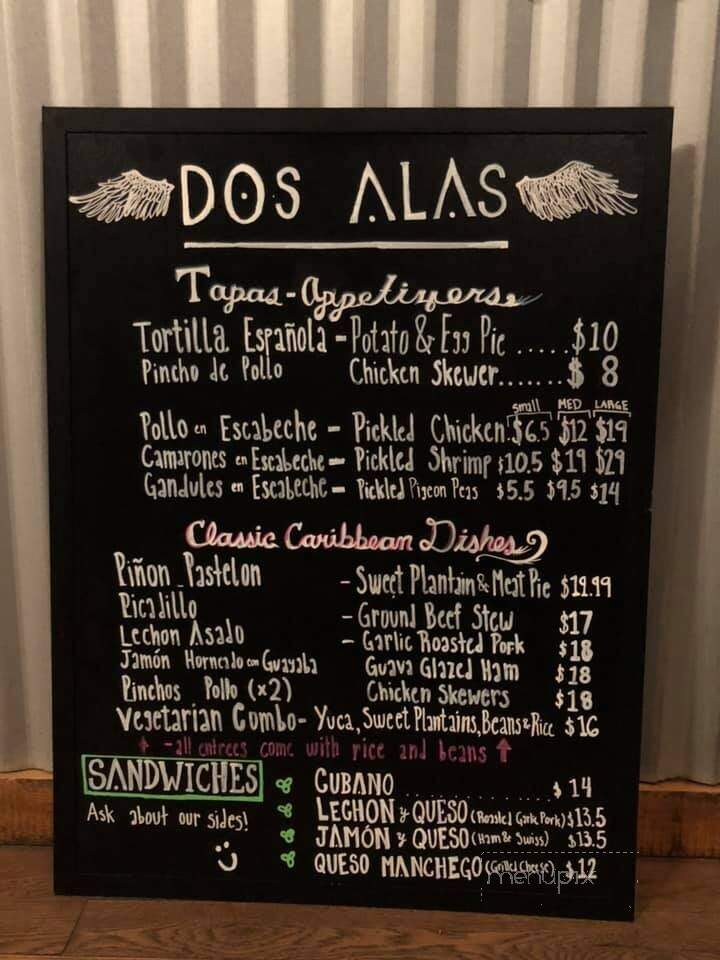 DOS ALAS
Tapas - Appetizers
Tortilla Española - Potato & Egg Pie .....$10
Pincho de Pollo Chicken Skewer.......$ 8
small MED LARGE
Pollo en Escabeche - Pickled Chicken $6.5 $12 $19
Camarones en Escabeche - Pickled Shrimp $10.5 $19 $29
Gandules en Escabeche - Pickled Pigeon Peas $5.5 $9.5 $14
Classic Caribbean Dishes
Piñon Pastelon - Sweet Plantain & Meat Pie $19.99
Picadillo - Ground Beef Stew $17
Lechon Asado - Garlic Roasted Pork $18
Jamón Horneado con Guayaba Guava Glazed Ham $18
Pinchos Pollo (x2) Chicken Skewers $18
Vegetarian Combo - Yuca, Sweet Plantains, Beans & Rice $16
↑ - all entrees come with rice and beans ↑
SANDWICHES
Ask about our sides!
CUBANO .......... $ 14
LECHON y QUESO (Roasted Garlic Pork) $13.5
JAMÓN y QUESO (Ham & Swiss) $13.5
QUESO MANCHEGO (Grilled Cheese) $12
menupix